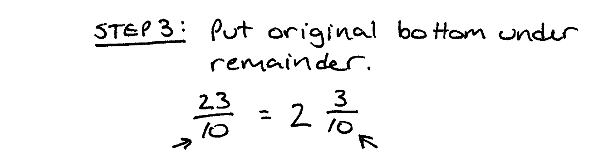 STEP 3: Put original bottom under
remainder.
23/10 = 2 3/10